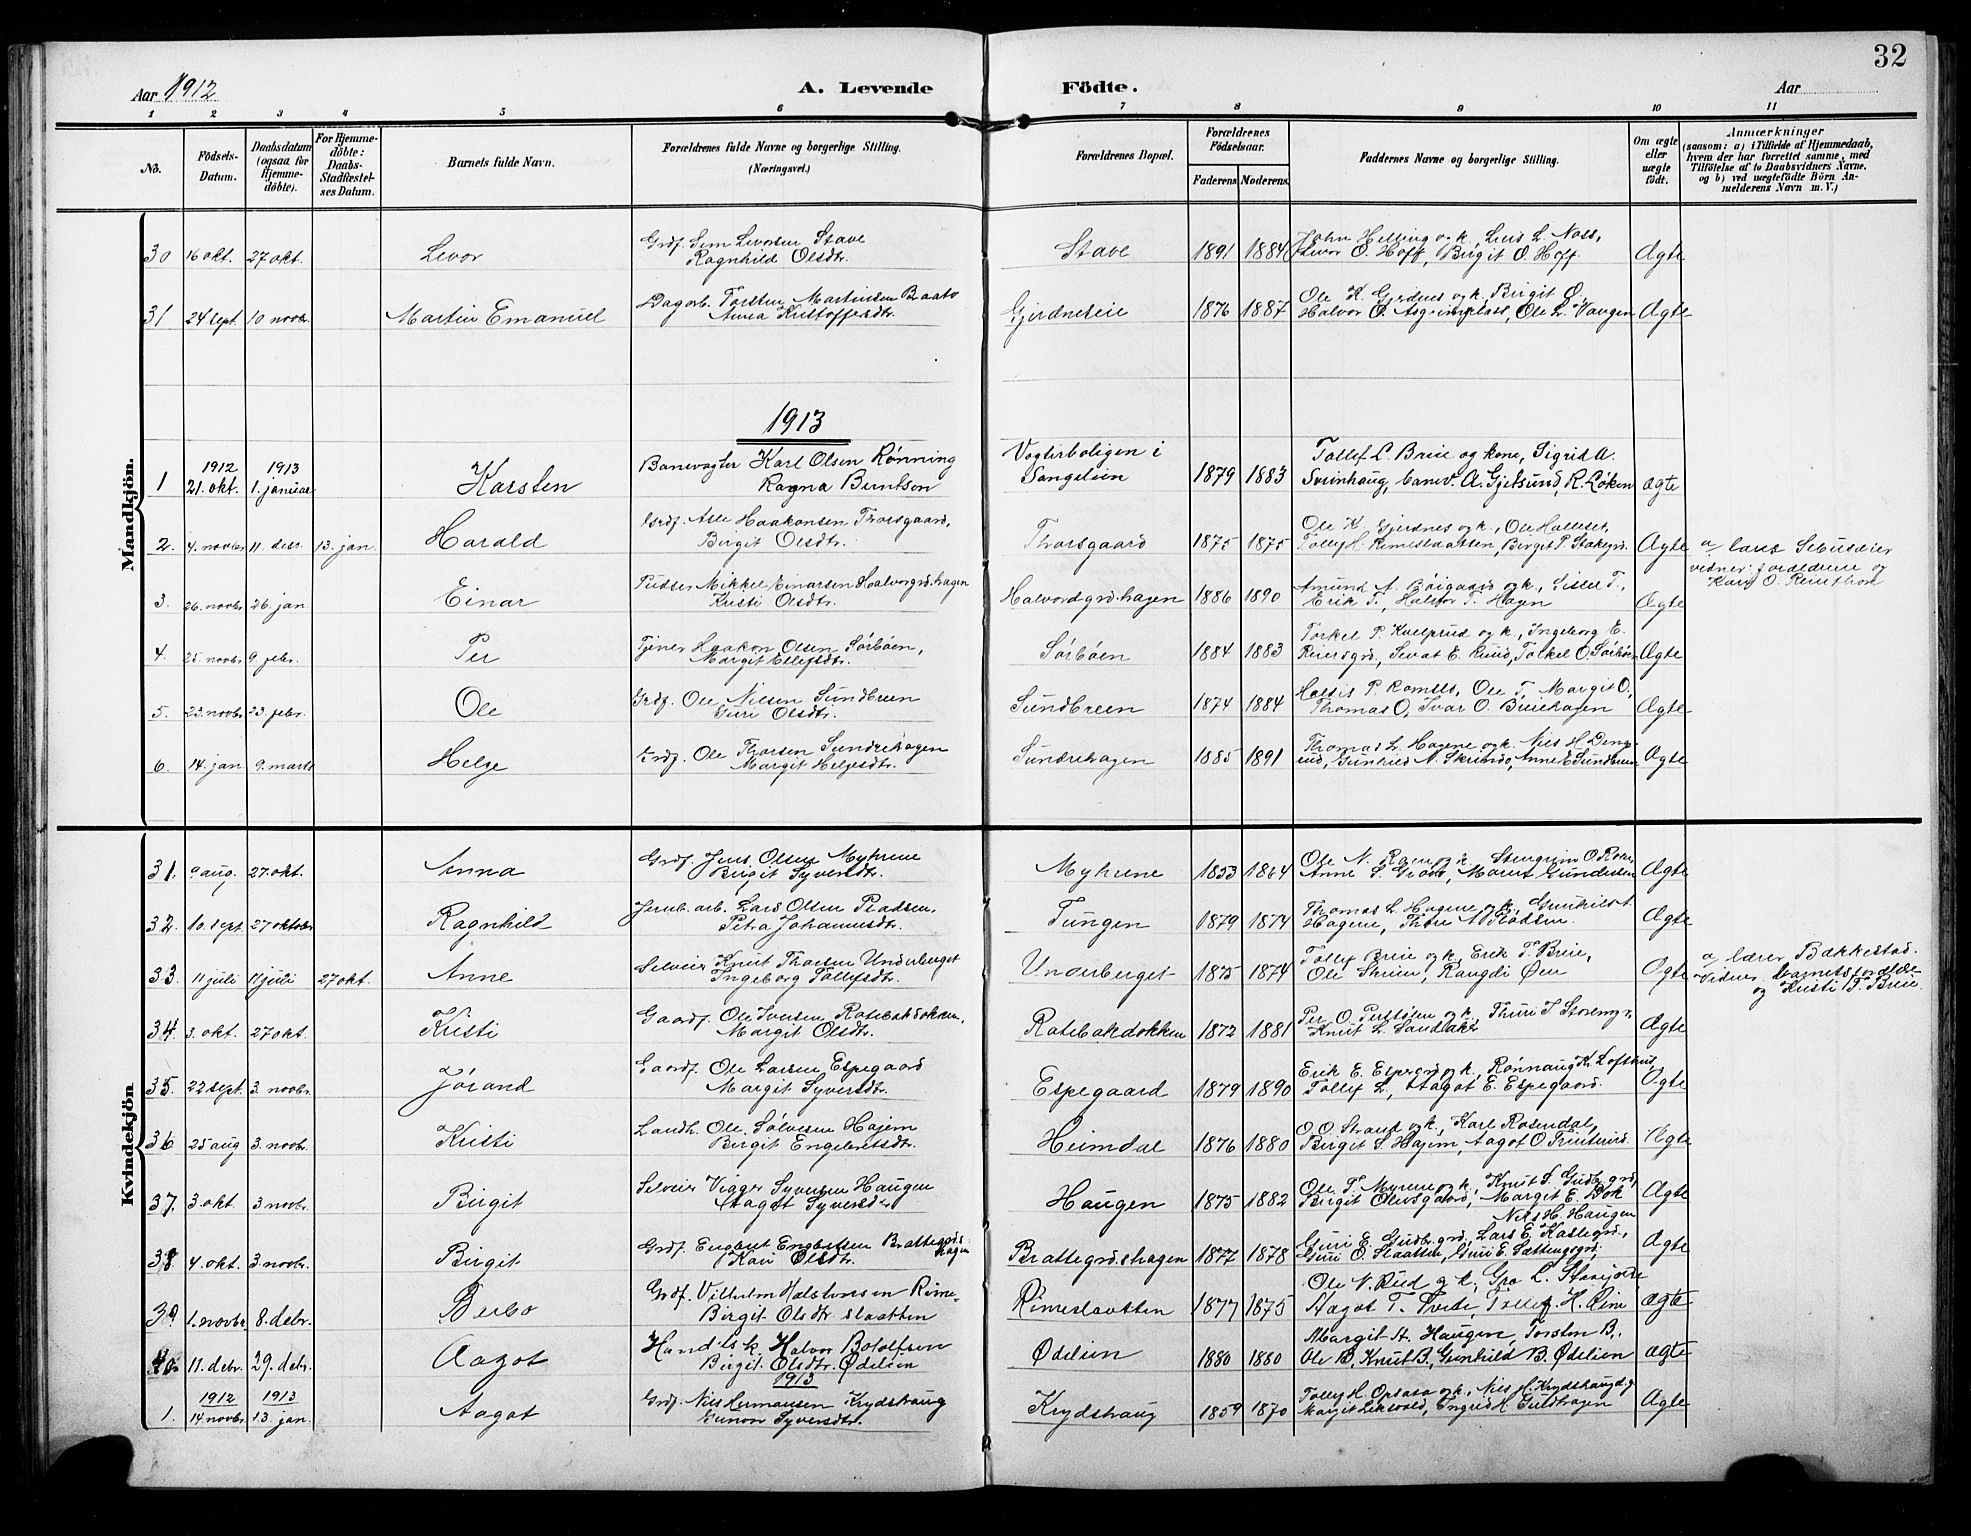 32
Aar 1912
A. Levende
Födte.
Aar
1 2 3 4 5 6 7 8 9 10 11
No.
Födsels-Datum.
Daabsdatum (ogsaa for Hjemme-döbte).
For Hjemme-döbte: Daabs-Stadfæstel-ses Datum.
Barnets fulde Navn.
Forældrenes fulde Navne og borgerlige Stilling.
(Næringsvei.)
Forældrenes Bopæl.
Forældrenes Födselsaar.
Faderens Moderens
Faddernes Navne og borgerlige Stilling.
Om ægte eller uægte födt.
Anmærkninger
(saasom: a) i Tilfælde af Hjemmedaab,
hvem der har forrettet samme, med
Tilföielse af to Daabsvidners Navne.
og b) ved uægtefödte Börn An-
melderens Navn m. V.)
Mandkjön.
30 16 okt. 27 okt. Levor
Grdf. Sem Levorsen Stave
Ragnhild Olsdtr.
Stave 1891 1884
Levor O. Hoff, Birgit O. Hoff.
Ægte
31 24 sept. 10 novbr. Martin Emanuel
Dagarb. Torsten Martinsen Baato
Anna Kristoffersdtr.
Gjerdneseie 1876 1887
Ole K. Gjerdnes og k, Birgit O.
Halvor O. Asgrimsplass, Ole L. Vangen
Ægte
1913
1 1912 21. okt. 1913 1. januar Karsten
Banevogter Karl Olsen Rønning
Ragna Berntsen
Vogterboligen i
1879 1883
Tollef L. Breie og kone, Sigrid A.
Svinhaug, banev. A. Gjelsund, R. Løken
ægte
2. 4. novbr. 11. debr. 13. jan. Harald
Grdf. Asle Haakonsen Thorsgaard,
Birgit Olsdtr.
Thorsgaard 1875 1875
Ole K. Gjerdnes og k, Ole Halleset,
Tollef H. Rimeslaatten, Birgit P. Stakegrd.
Ægte
vidner: forældrene og
3. 26. novbr. 26. jan. Einar
Pudser Mikkel Einarsen Halvorsgrd.hagen
Kristi Olsdtr.
Halvordgrd.hagen 1886 1890
Amund A. Bøigaard og k, Sissel T.,
Erik T., Halvor T. Hagen
Ægte
4. 25. novbr. 9. febr. Per
Tjener Haakon Olsen Sørbøen,
Margit Ellefsdtr.
Sørbøen 1884 1883
Torkel P. Kvelprud og k, Ingeborg E.
Reiersgrd, Sevat E. Ruud, Torkel O. Sørbøen
Ægte
5. 23. novbr. 23. febr. Ole
Grdf. Ole Nilsen Sundbreen
Guri Olsdtr.
Sundbreen 1874 1884
Ole T. Margit O,
Thomas O, Ivar O. Breiehagen
Ægte
6. 14. jan 9. marts Helge
Grdf. Ole Thorsen Sundrehagen
Margit Helgesdtr.
Sundrehagen 1885 1891
Thomas L. Hagene og k. Nils H.
Gunhild N. Skrindo, Anne E Sundbreen
Ægte
Kvindekjön
31. 9 aug. 27. okt. Anna
Grdf. Jens Olsen Myhrene
Birgit Syversdtr.
Myhrene 1853 1864
Ægte
32. 10. sept. 27 oktobr Ragnhild
Jernb. arb. Lars Olsen Pladsen,
Petra Johannesdtr.
Tungen 1879 1874
Thomas L. Hagene og k. Gunhild A
Hagene, Thore A Pladsen
Ægte
33 11 juli 11 juli 27 okt. Anne
Selveier Knut Thorsen Underberget
Ingeborg Tollefsdtr.
Underberget 1875 1874
Tollef Breie og k, Erik T. Breie,
Ole Skrien, Rangdi Øen
Ægte
a, lærer Bækkestad.
Vidner, barnets forældre
og Kristi T. Breie.
34. 3. okt. 27 okt. Kristi
Gaardf. Ole Iversen Rotebakdokken,
Margit Olsdtr.
Rotebakdokken 1872 1881
Knut L. Sandbakk
Ægte
35. 22 sept. 3. novbr. Jørand
Gaardf. Ole Larsen Espegaard
Margit Syversdtr.
Espegaard 1879 1890
Erik E. Espegrd og k, Rønnaug K. Lofthus,
Tollef L., Aagot E. Espegaard.
Ægte
36 25 aug 3. novbr. Kristi
Landh. Ole Sølvesen Hajem
Birgit Engebretsdtr.
Heimdal 1876 1880
O. O. Strand og k, Karl Rosendal,
Birgit S. Hajem, Aagot O.
Ægte
37. 3 okt. 3 novbr. Birgit
Selveier Vigger Syversen Haugen
Aagot Syversdtr.
Haugen 1875 1882
Ole T. Myrene og k, Knut S. Gudbr.grd,
Birgit Olivsgaard, Margit E. Bok
Nils H. Haugen
Ægte
38 4. okt. 3. novbr. Birgit
Grdf. Engebret Engebretsen Brattegrds-
hagen
Kari Olsdtr.
Brattegrdshagen 1877 1878
Guri E. Gudbr.grd, Lars E. Kaslegrd,
Guri O. Slaatten, Guri E. Sættengsgrd.
Ægte
39 1. novbr. 8. debr. Berbo
Grdf. Vilhelm Halstensen Rime-
Birgit Olsdtr slaatten
Rimeslaatten 1877 1875
Ole N. Rud og k, Gro L.
Aagot T. Tveito, Tollef H. Rim
ægte
40 11. debr. 29. debr. Aagot
Handelsk. Halvor Botolfsen
Birgit Olsdtr. Ødelien
Ødelien 1880 1880
Margit A. Haugen, Torsten B.,
Ole B, Knut B., Gunhild B. Ødelien
ægte
1913
1. 1912 14 novbr. 1913 13. jan. Aagot
Grdf. Nils Hermansen Krydshaug
Gunvor Syversdtr.
Krydshaug 1859 1870
Tollef H. Opsata og k, Nils H. Krydshaug og
Margit Lekvold, Ingrid H. Guldhagen
Ægte